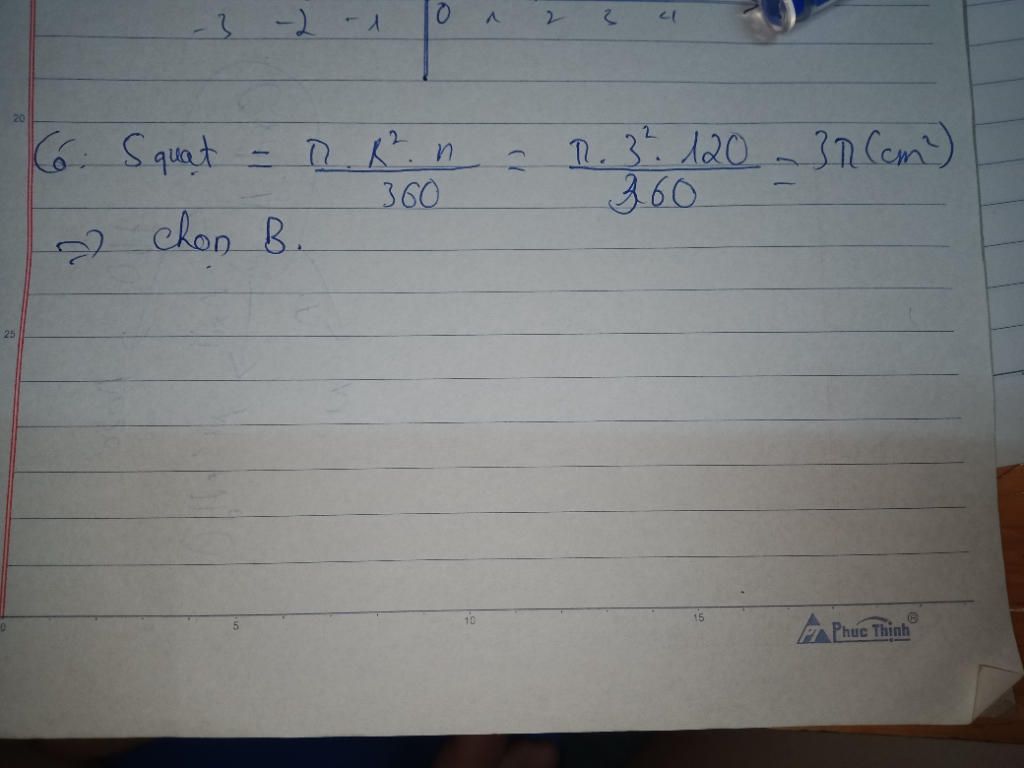 -3 -2 -1 0 1 2 3 4
20
C6: Squạt = π.R².n/360 = π.3².120/360 = 3π(cm²)
⇒ chọn B.
25
0 5 10 15
Phuc Thịnh®